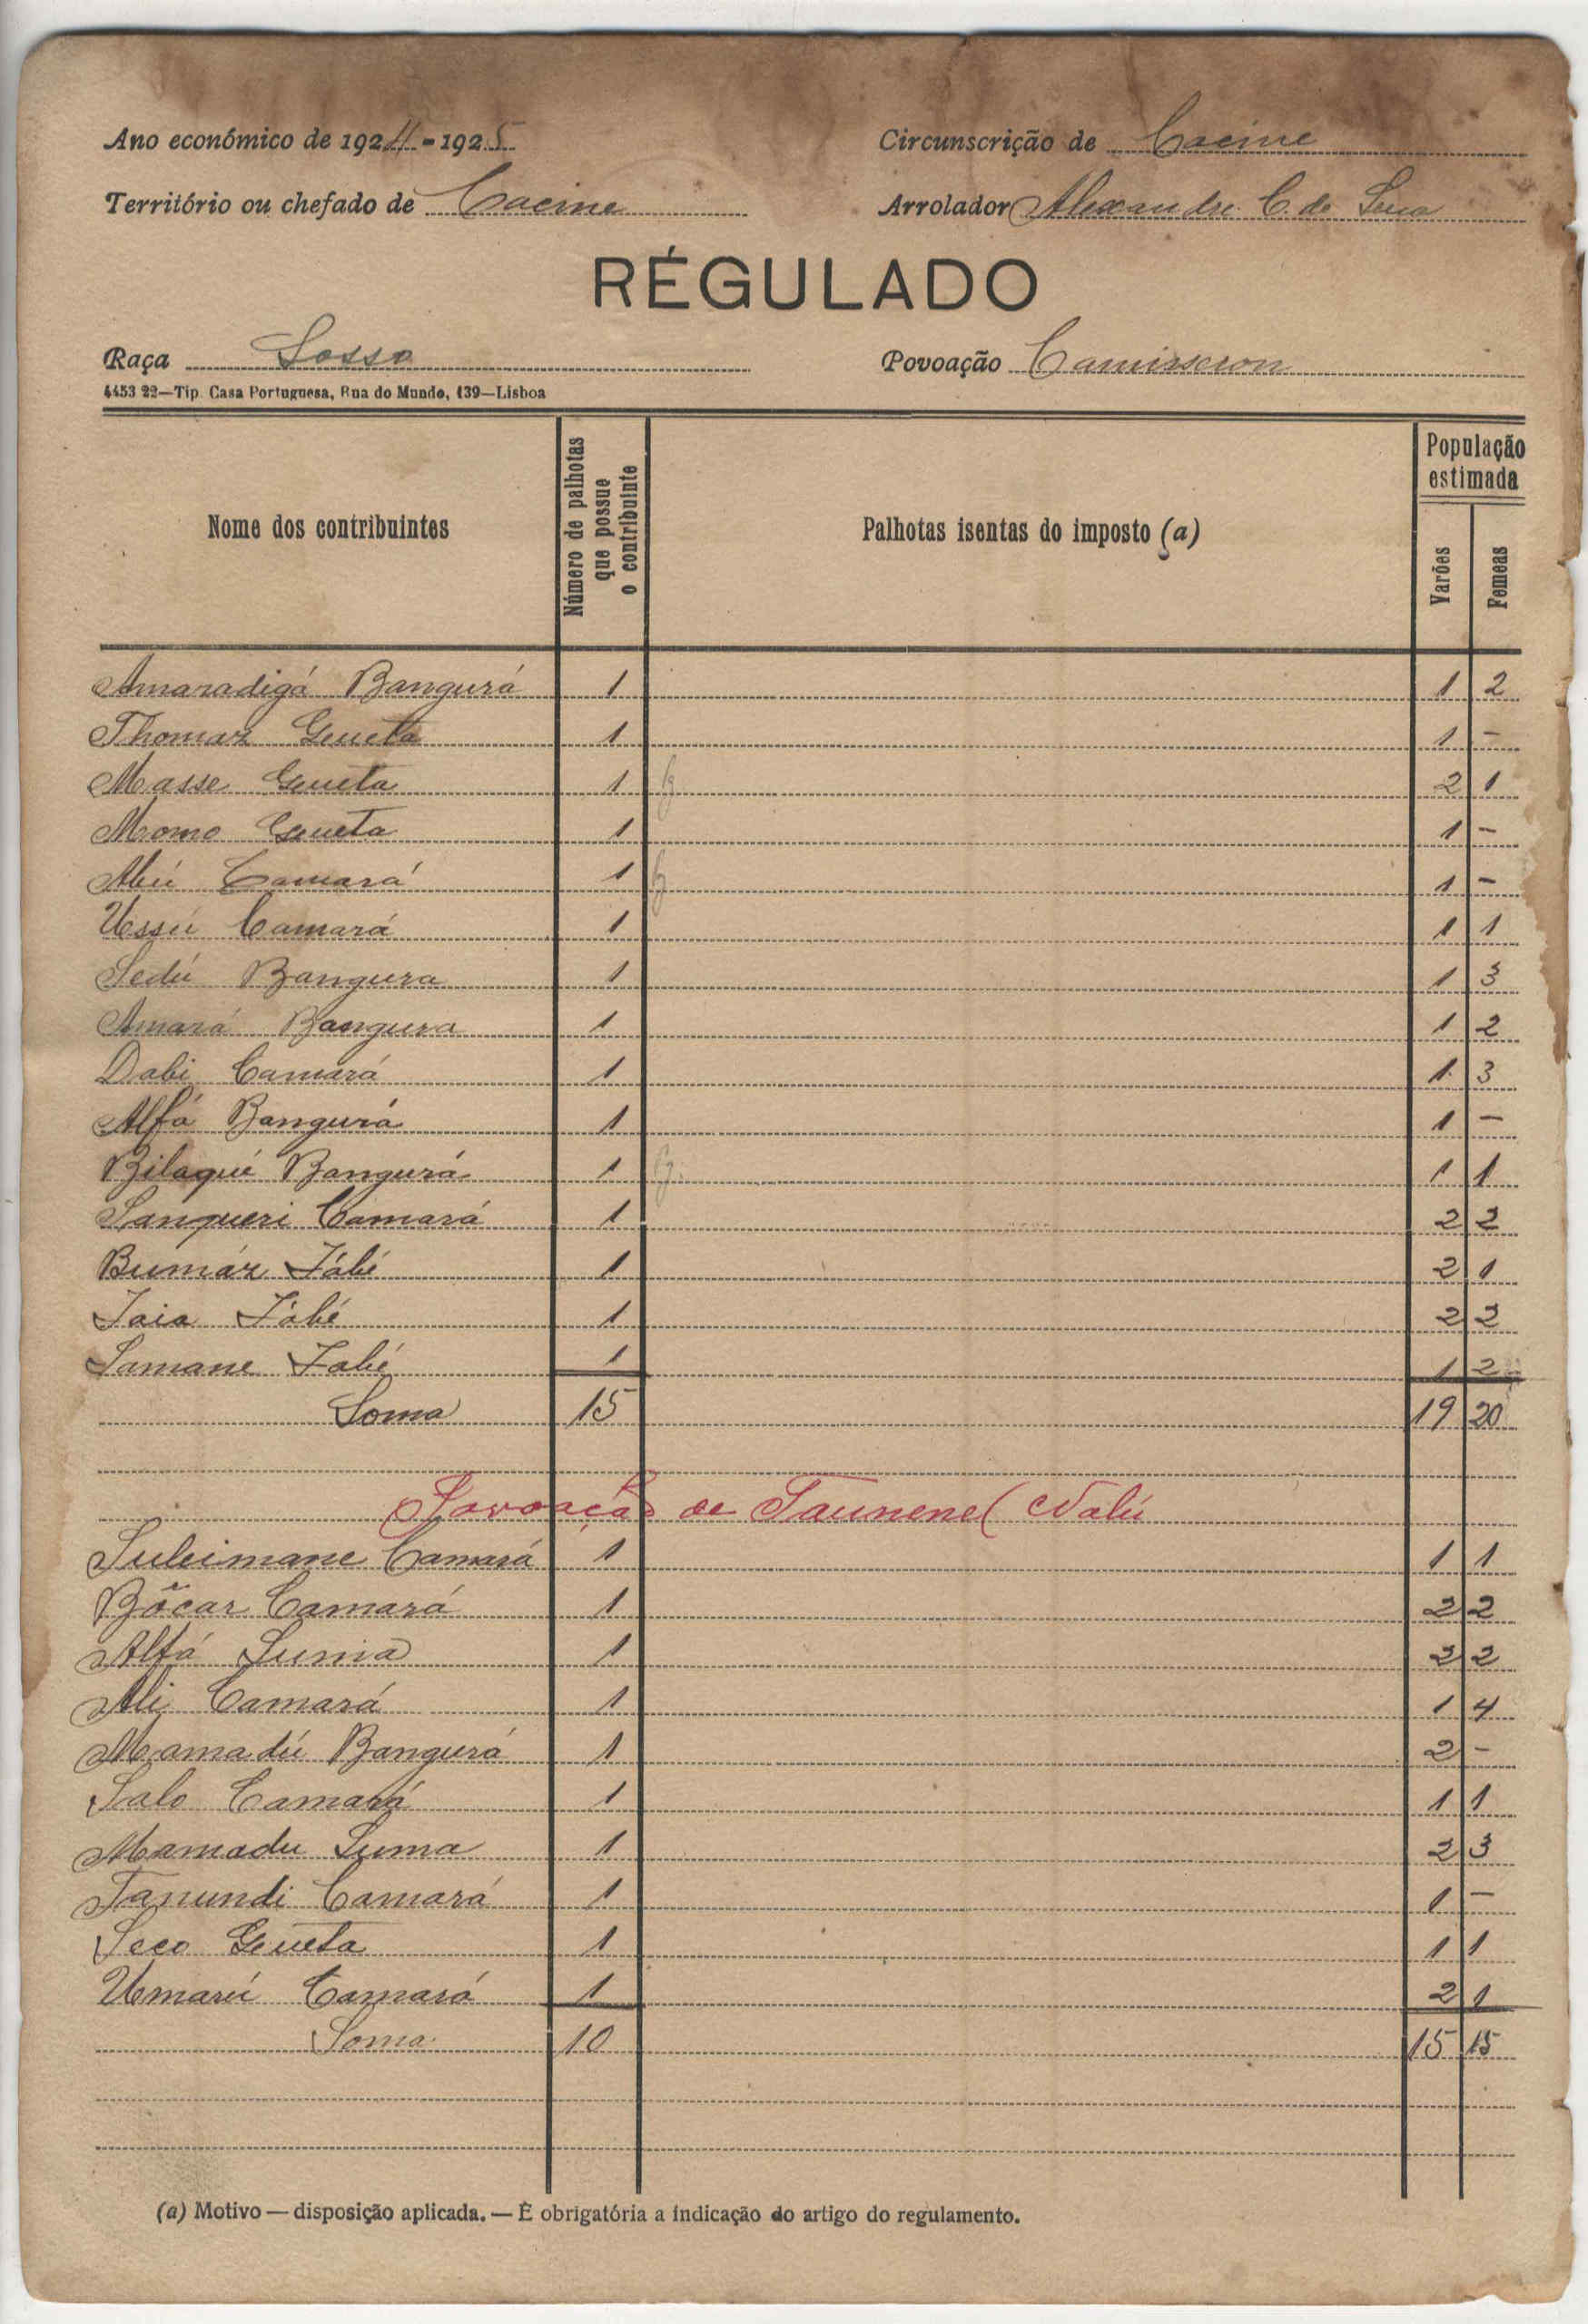 Ano económico de 1924-1925
Circunscrição de Cacine
Território ou chefado de Cacine
Arrolador Alexandre C. de
RÉGULADO
Raça Sosso
Povoação Camissoron
4453 22—Tip. Casa Portuguesa, Rua do Mundo, 139—Lisboa
Nome dos contribuintes
Número de palhotas que possue o contribuinte
Palhotas isentas do imposto (a)
População estimada
Varões
Femeas
Amaradigá Bangurá 1 1 2
Thomaz Gueta 1 1 -
Masse Gueta 1 2 1
Momo Gueta 1 1 -
Abú Camará 1 1 -
Ussú Camará 1 1 1
Sedú Bangura 1 1 3
Amará Bangura 1 1 2
Dabi Camará 1 1 3
Alfá Bangurá 1 1 -
Bilaqué Bangurá 1 1 1
Sanqueri Camará 1 2 2
Bumáz Fábé 1 2 1
Iaia Fábé 1 2 2
Samane Fabé 1 1 2
Soma 15 19 20
Povoação de Taunene ( Nalú
Suleimane Camará 1 1 1
Bôcar Camará 1 2 2
Alfá Suma 1 2 2
Ali Camará 1 1 4
Mamadú Bangurá 1 2 -
Salo Camará 1 1 1
Mamadu Suma 1 2 3
Fanundi Camará 1 1 -
Seco Gueta 1 1 1
Umarú Camará 1 2 1
Soma 10 15 15
(a) Motivo — disposição aplicada. — É obrigatória a indicação do artigo do regulamento.